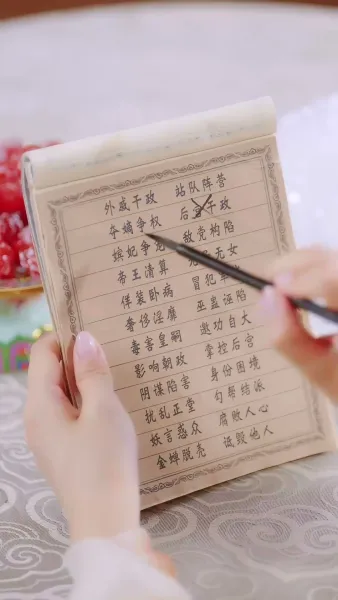 外戚干政 站队阵营
夺嫡争权 后宫干政
嫔妃争宠 敌党构陷
帝王清算 无女
佯装卧病 冒犯
奢侈淫靡 巫蛊诬陷
毒害皇嗣 邀功自大
影响朝政 掌控后宫
阴谋陷害 身份困境
扰乱正堂 勾帮结派
妖言惑众 腐败人心
金蝉脱壳 诋毁他人